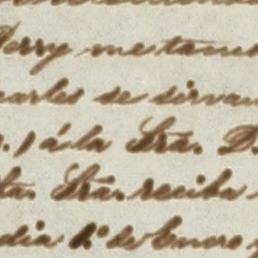 Perry me tanc
carles se sirvan
á la Sra. D.
ta. Sra. reciba
dia 1.º de Enero